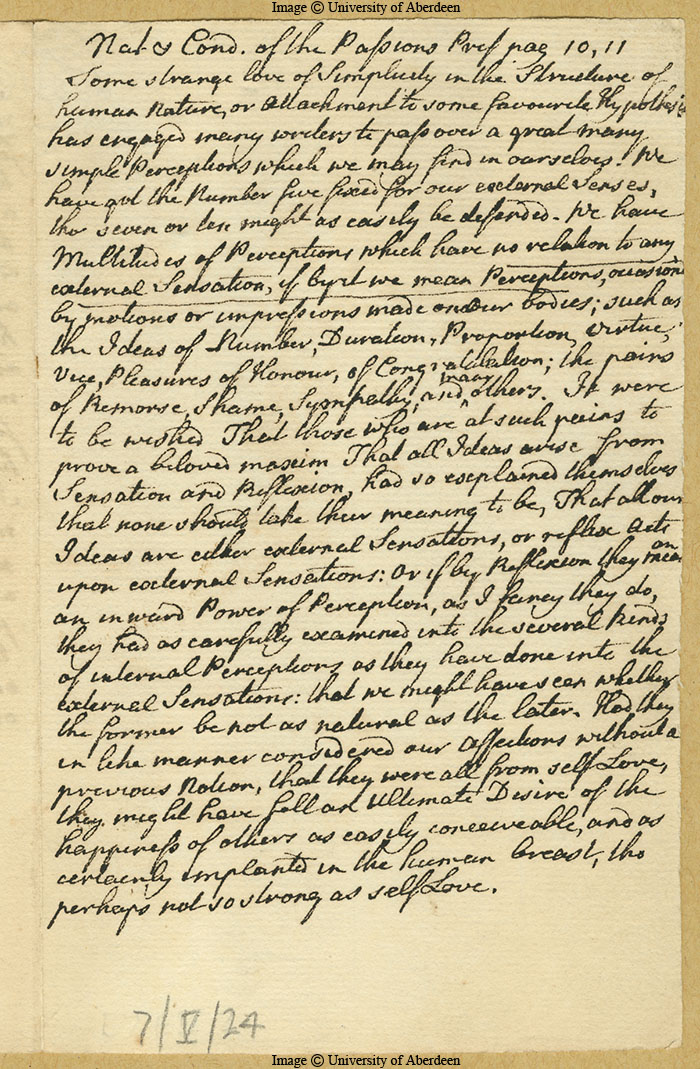 Image © University of Aberdeen
Nat & Cond. of the Passions Pref pag 10, 11
Some strange love of Simplicity in the Structure of
human Nature, or attachment to some favourite Hypothesis
has engaged many writers to pass over a great many
simple Perceptions which we may find in ourselves. We
have got the Number five fixed for our external Senses,
tho seven or ten might as easily be defended. We have
Multitudes of Perceptions which have no relation to any
external Sensation, if by it we mean Perceptions, occasiond
by motions or impressions made on our bodies; such as
the Ideas of Number, Duration, Proportion, Virtue,
Vice, Pleasures of Honour, of Congratulation; the pains
of Remorse, Shame, Sympathy, and many others. It were
to be wished That those who are at such pains to
prove a beloved maxim That all Ideas arise from
Sensation and Reflexion, had so explained themselves
that none should take their meaning to be, That all our
Ideas are either external Sensations, or reflex Acts
upon external Sensations: Or if by Reflexion they mean
an inward Power of Perception, as I fancy they do,
they had as carefully examined into the several kinds
of internal Perceptions as they have done into the
external Sensations: that we might have seen whether
the former be not as natural as the later. Had they
in like manner considered our Affections without a
previous Notion, that they were all from self Love,
they might have felt an Ultimate Desire of the
happiness of others as easily conceiveable, and as
certainly implanted in the human breast, tho
perhaps not so strong as self Love.
7/V/24
Image © University of Aberdeen